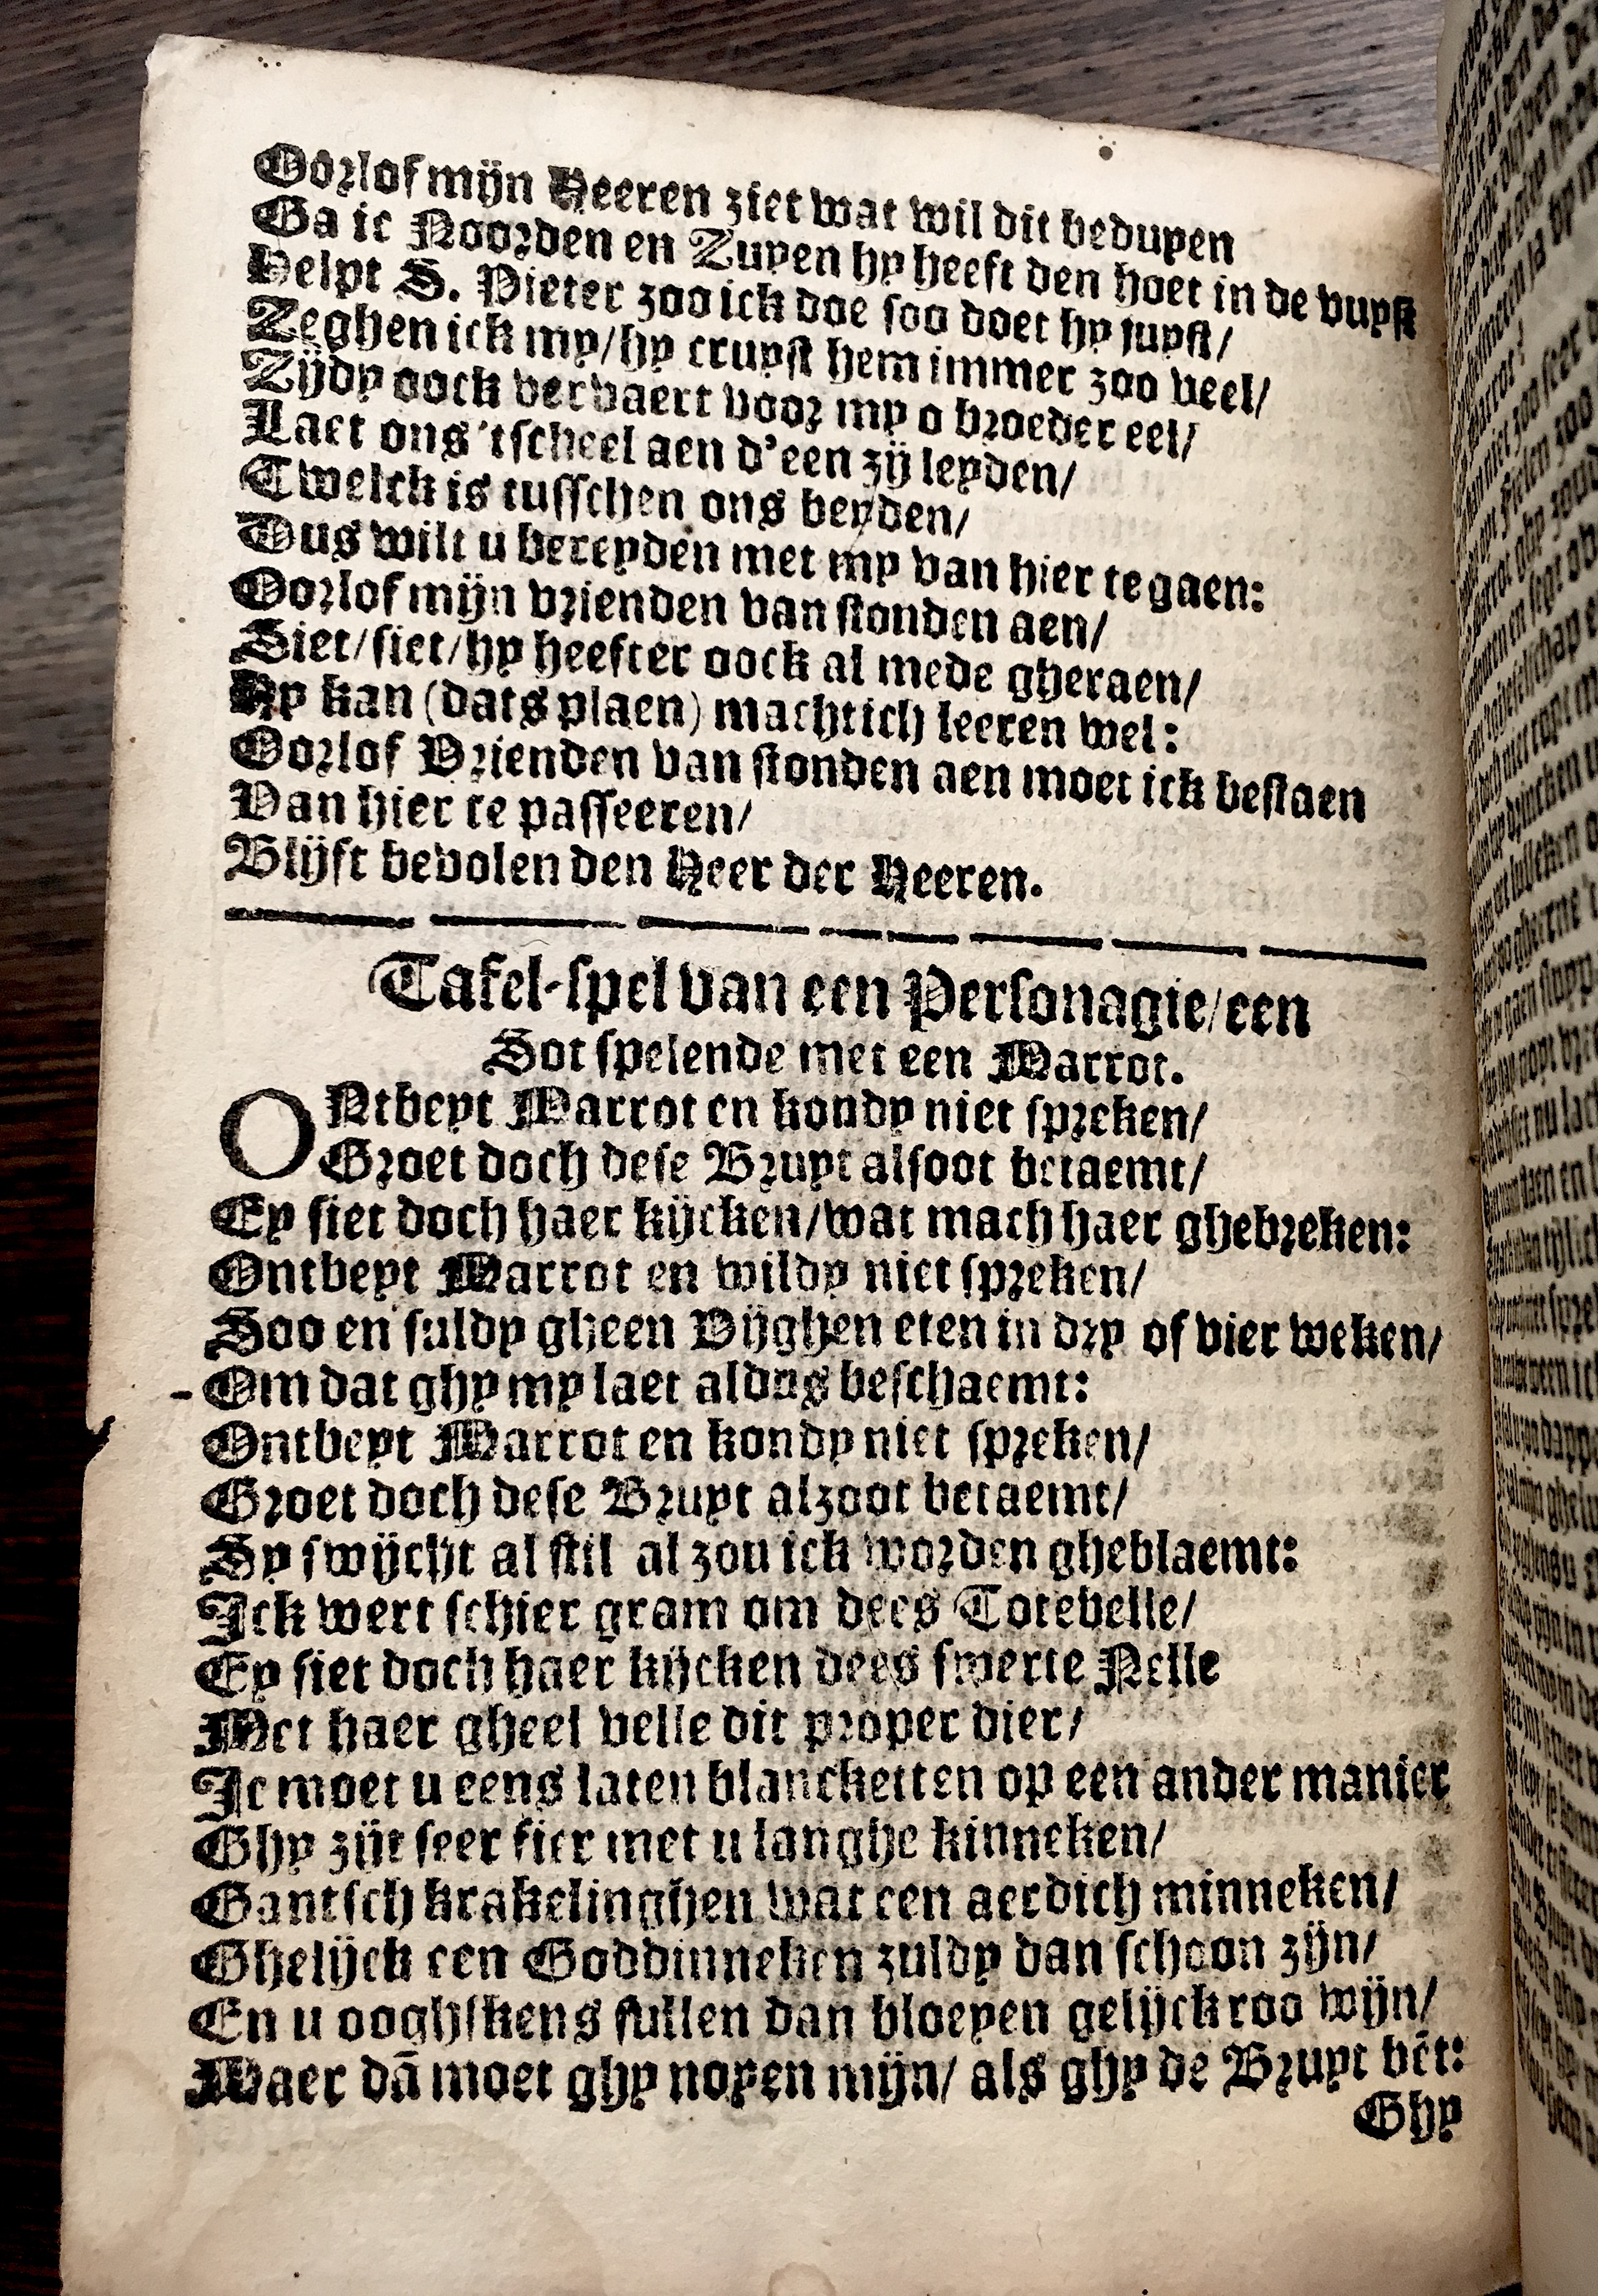 Oôrlof mijn Heeren ziet wat wil dit beduyen
Ga ic Noorden en Zuyen hy heeft den hoet in de vuyst
Helpt S. Pieter zoo ick doe soo doet hy juyst/
Zeghen ick my/hy cruyst hem immer zoo veel/
Zijdy oock vervaert voor my o broeder eel/
Laet ons 'tscheel aen d'een zij leyden/
Twelck is tusschen ons beyden/
Dus wilt u bereyden met my van hier te gaen:
Oorlof mijn vrienden van stonden aen/
Siet/siet/hy heefter oock al mede gheraen/
Hy kan (dats plaen) machtich leeren wel:
Oorlof Vrienden van stonden aen moet ick bestaen
Van hier te passeeren/
Blijft bevolen den Heer der Heeren.
Tafel-spel van een Personagie/een
Sot spelende met een Marrot.
ONtbeyt Marrot en kondy niet spreken/
Groet doch dese Bruyt alsoot betaemt/
Ey siet doch haer kijcken/wat mach haer ghebreken:
Ontbeyt Marrot en wildy niet spreken/
Soo en suldy gheen Vijghen eten in dry of vier weken/
Om dat ghy my laet aldus beschaemt:
Ontbeyt Marrot en kondy niet spreken/
Groet doch dese Bruyt alzoot betaemt/
Sy swijcht al stil al zou ick worden gheblaemt:
Ick wert schier gram om dees Totebelle/
Ey siet doch haer kijcken dees swerte Nelle
Met haer gheel velle dit proper dier/
Ic moet u eens laten blancketten op een ander manier
Ghy zijt seer fier met u langhe kinneken/
Gantsch krakelinghen wat een aerdich minneken/
Ghelijck een Goddinneken zuldy dan schoon zijn/
En u ooghskens sullen dan bloeyen gelijck roo wijn/
Maer dā moet ghy noyen mijn/ als ghy de Bruyt bēt:
Ghy